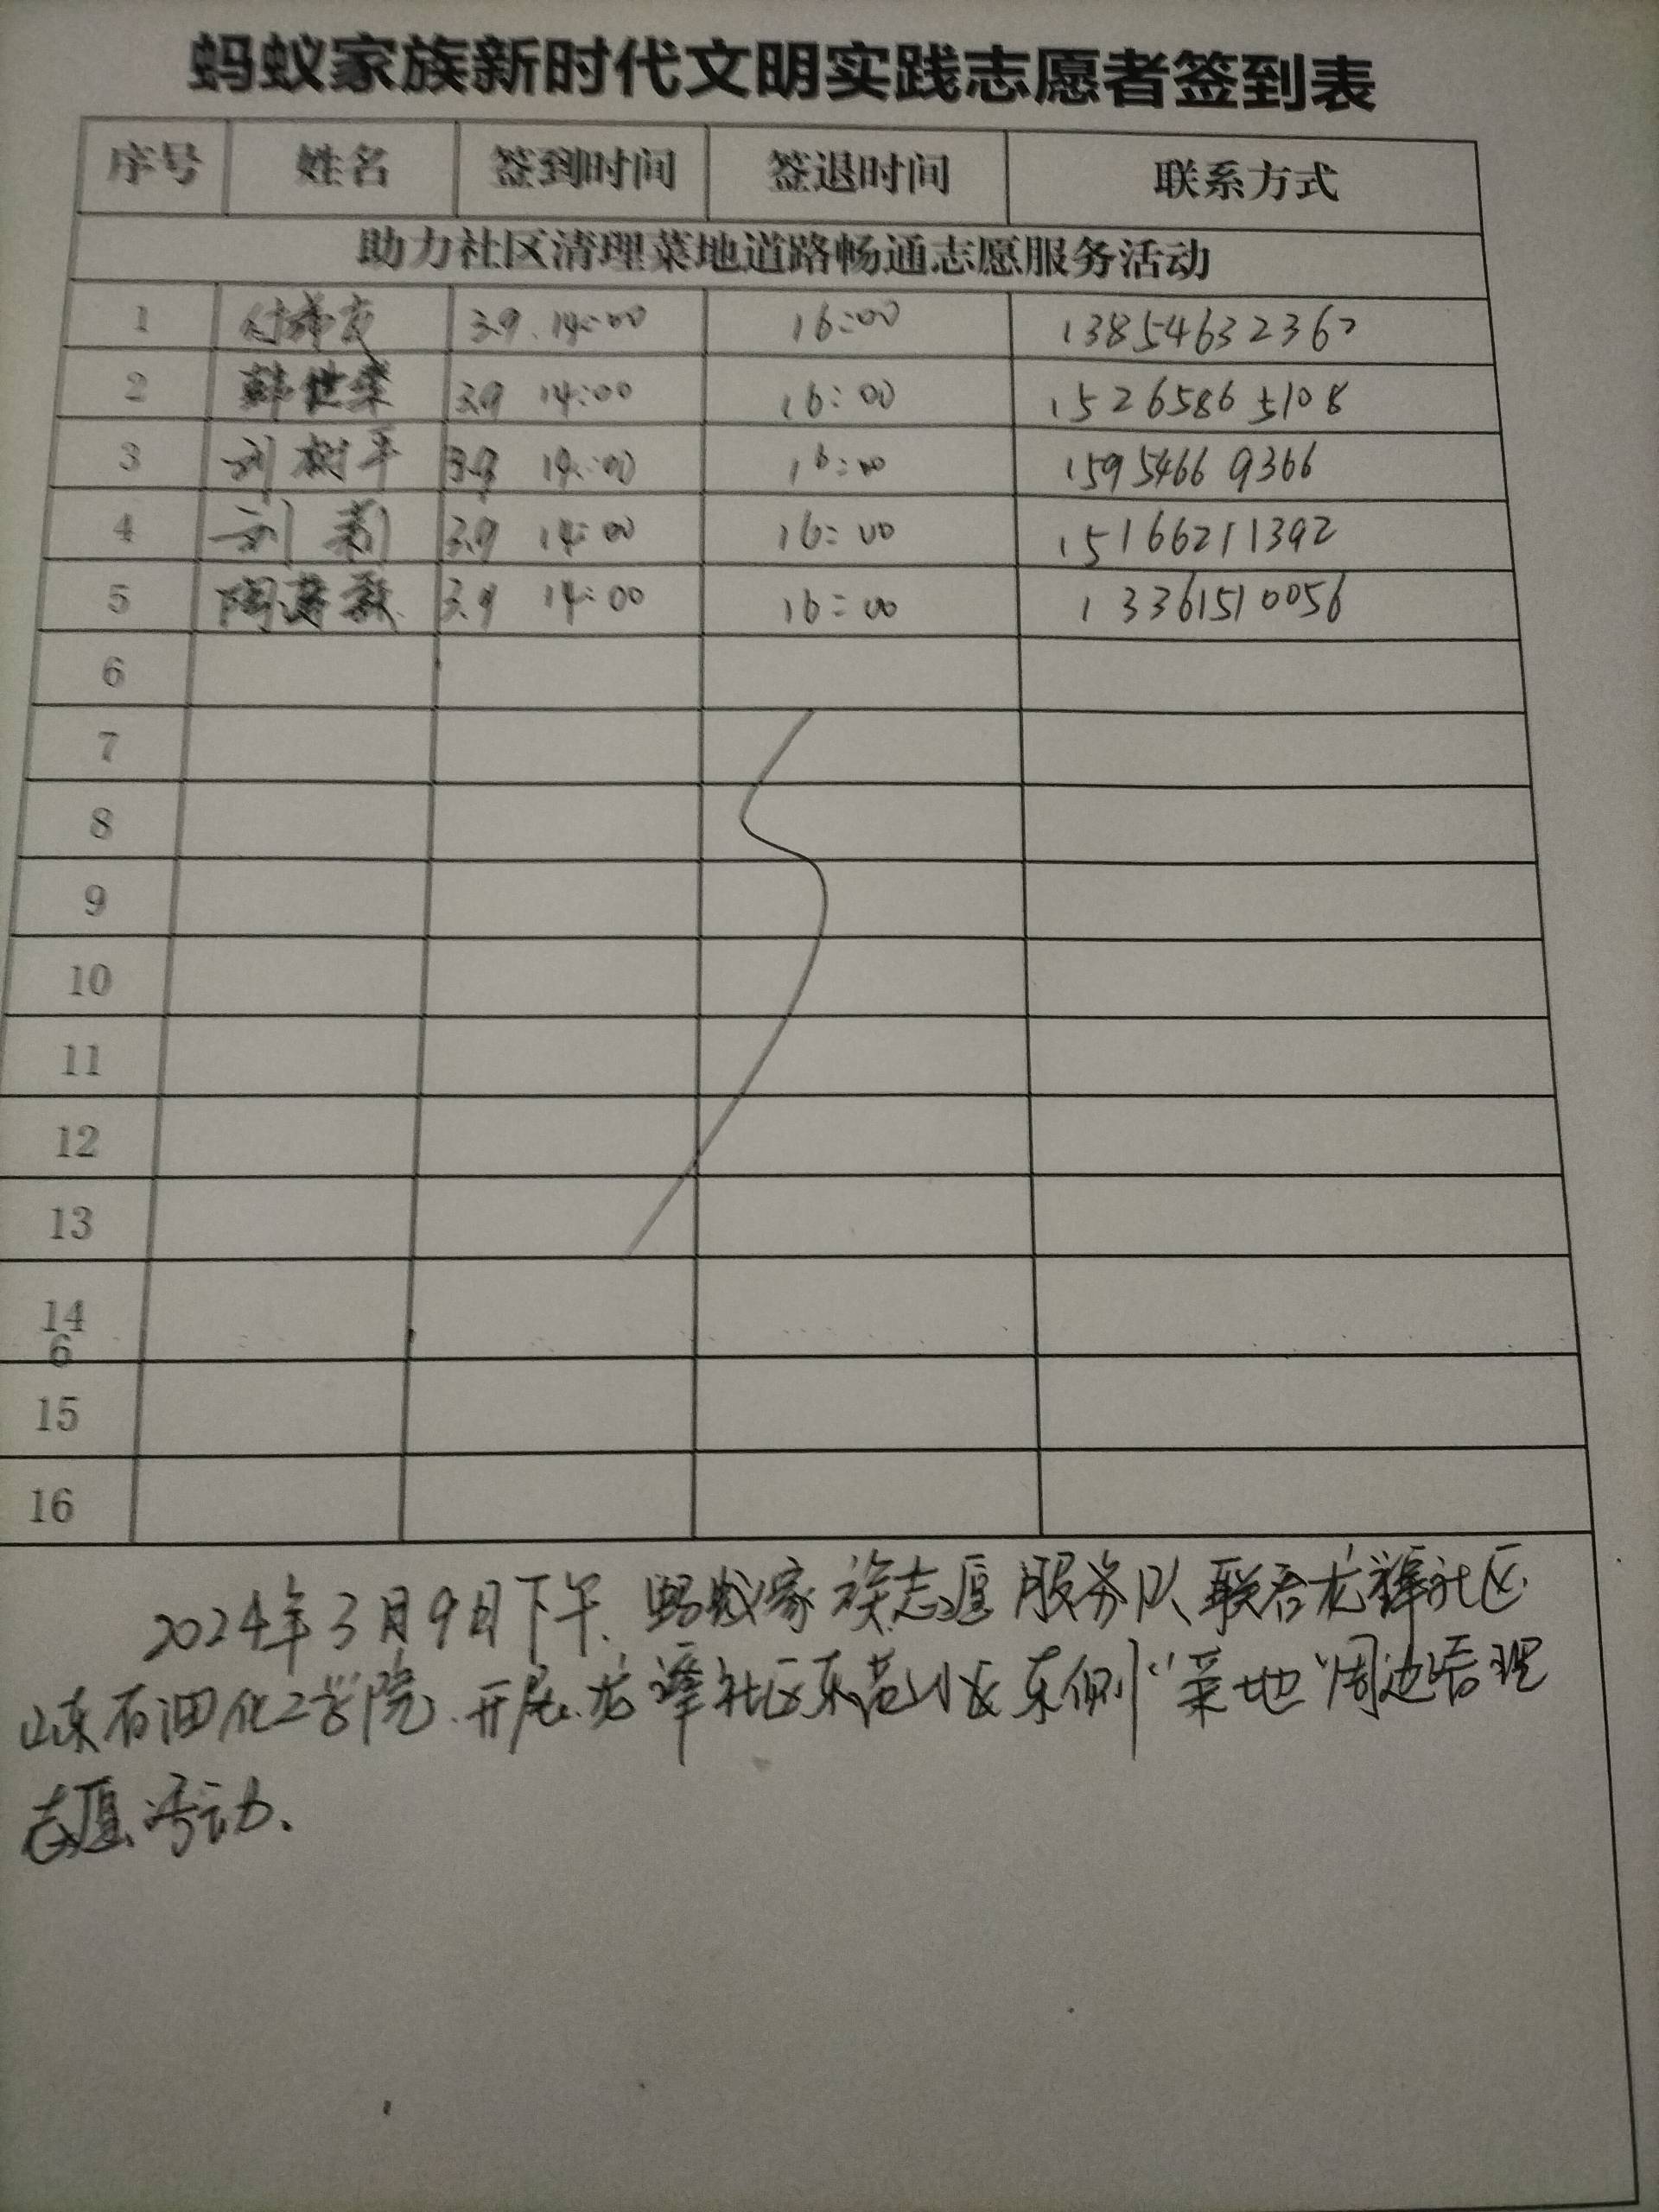 蚂蚁家族新时代文明实践志愿者签到表
序号 姓名 签到时间 签退时间 联系方式
助力社区清理菜地道路畅通志愿服务活动
1 3.9. 14:00 16:00 1385463236
2 韩世荣 3.9 14:00 16:00 15265865108
3 刘树平 3.9 14:00 16:00 15954669366
4 刘 3.9 14:00 16:00 15166211392
5 陶 3.9 14:00 16:00 13361510056
6
7
8
9
10
11
12
13
14
6
15
16
2024年3月9日下午、蚂蚁家族志愿服务队联合龙潭社区、
山东石油化工学院、开展龙潭社区东苑小区东侧“菜地”周边清理
志愿活动、